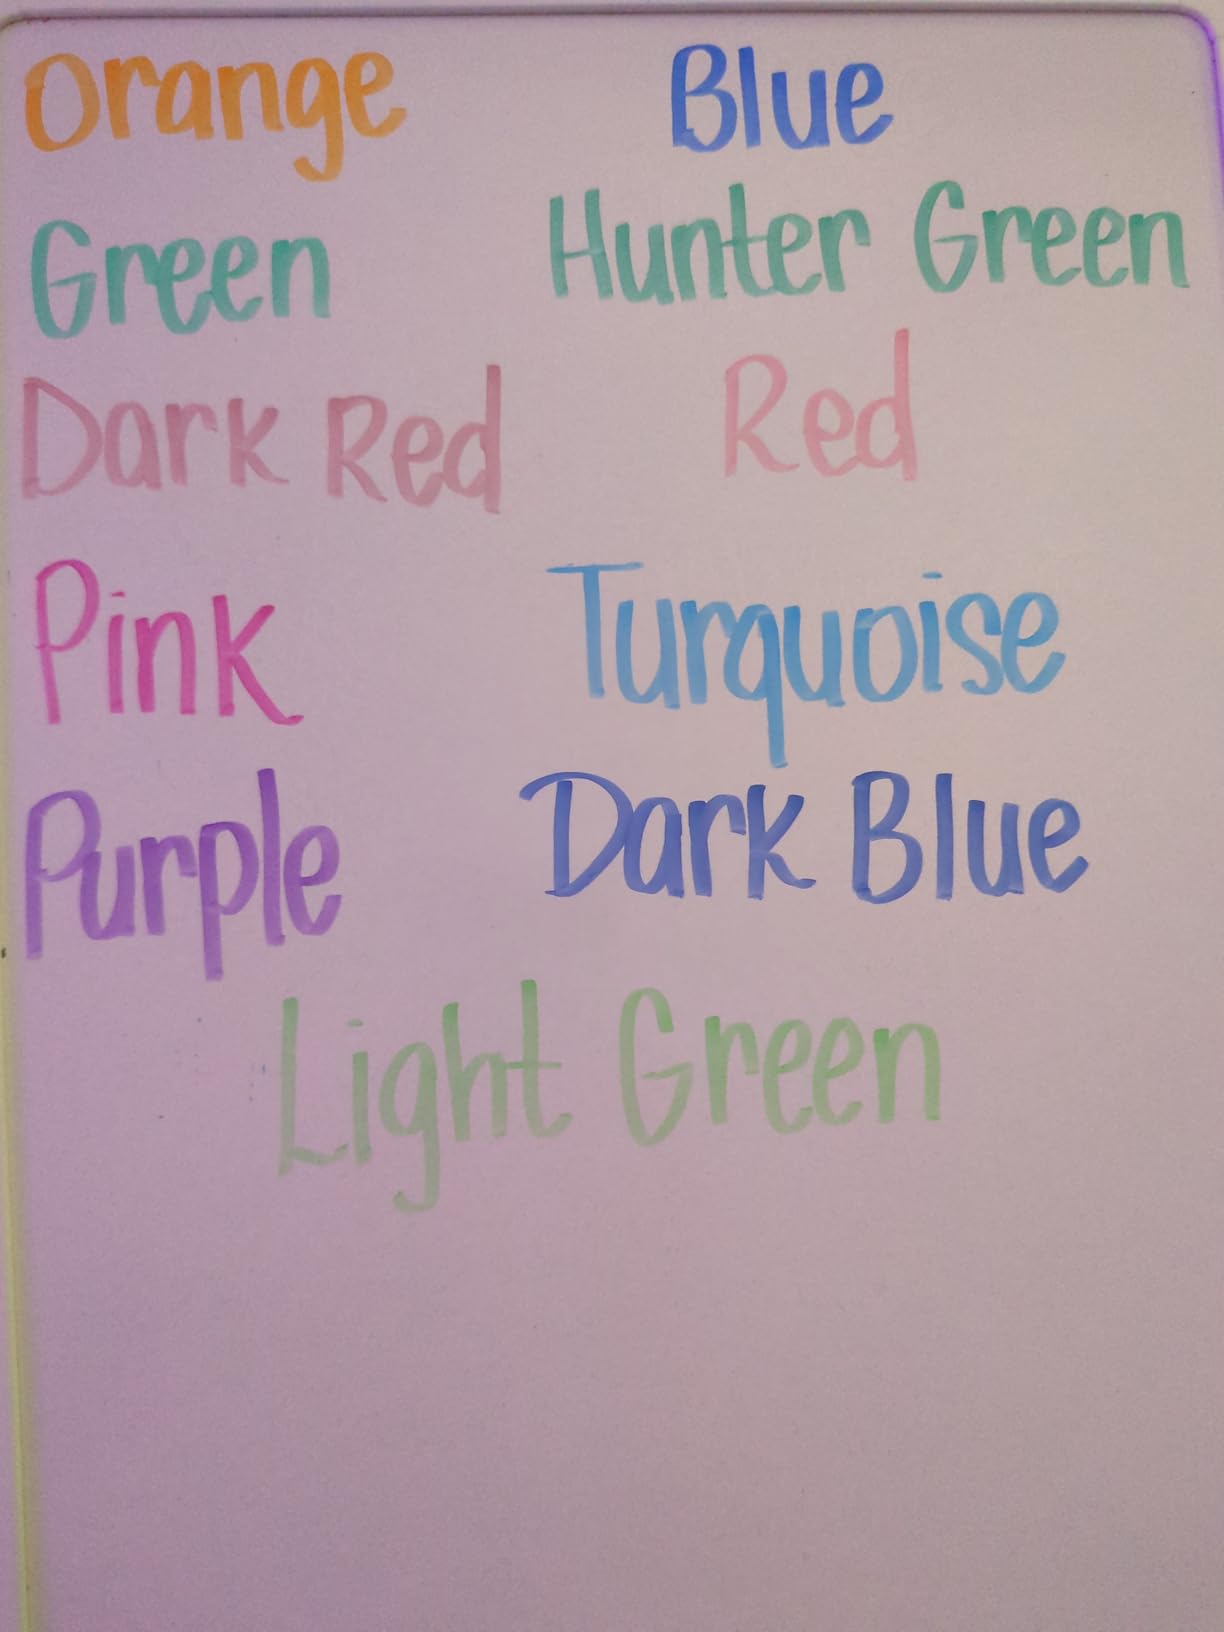 Orange Blue
Green Hunter Green
Dark Red Red
Pink Turquoise
Purple Dark Blue
Light Green